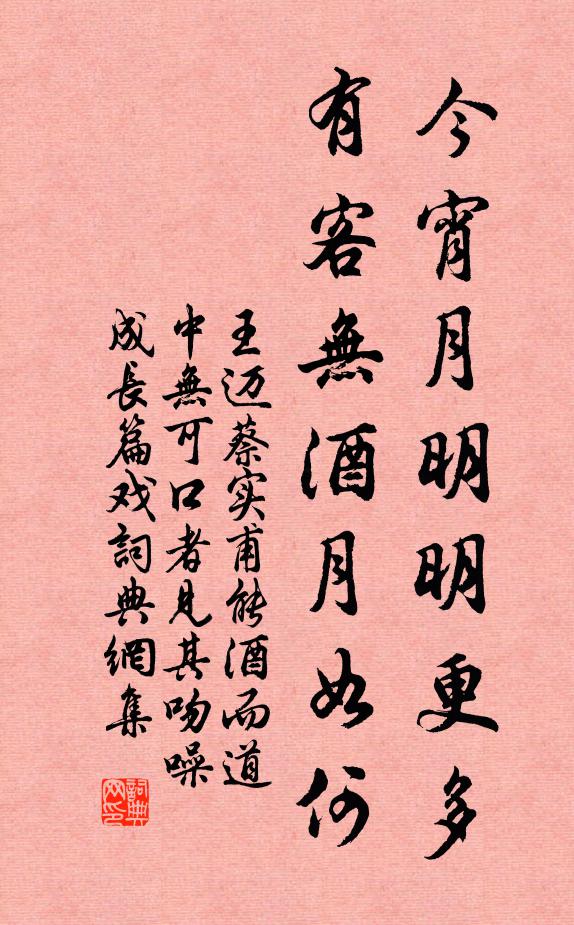 今宵月明明更多
有客無酒月如何
王迈蔡实甫能酒而道
中無可口者見其吻噪
成長篇戏詞典網集
詞典网印